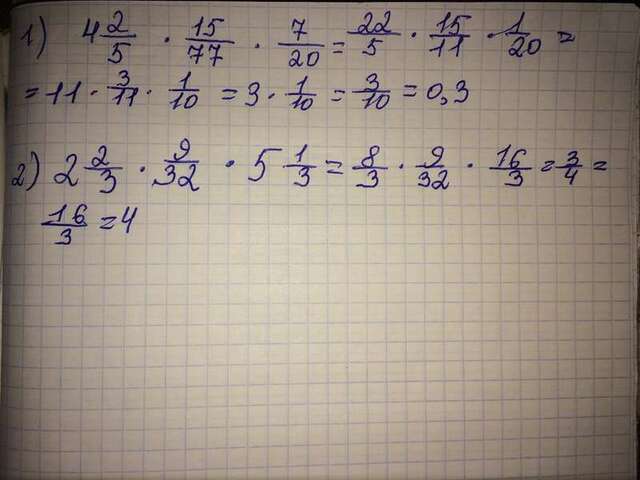 1) 4 2/5 · 15/77 · 7/20 = 22/5 · 15/11 · 1/20 =
= 11 · 3/11 · 1/10 = 3 · 1/10 = 3/10 = 0,3
2) 2 2/3 · 9/32 · 5 1/3 = 8/3 · 9/32 · 16/3 = 3/4 =
16/3 = 4